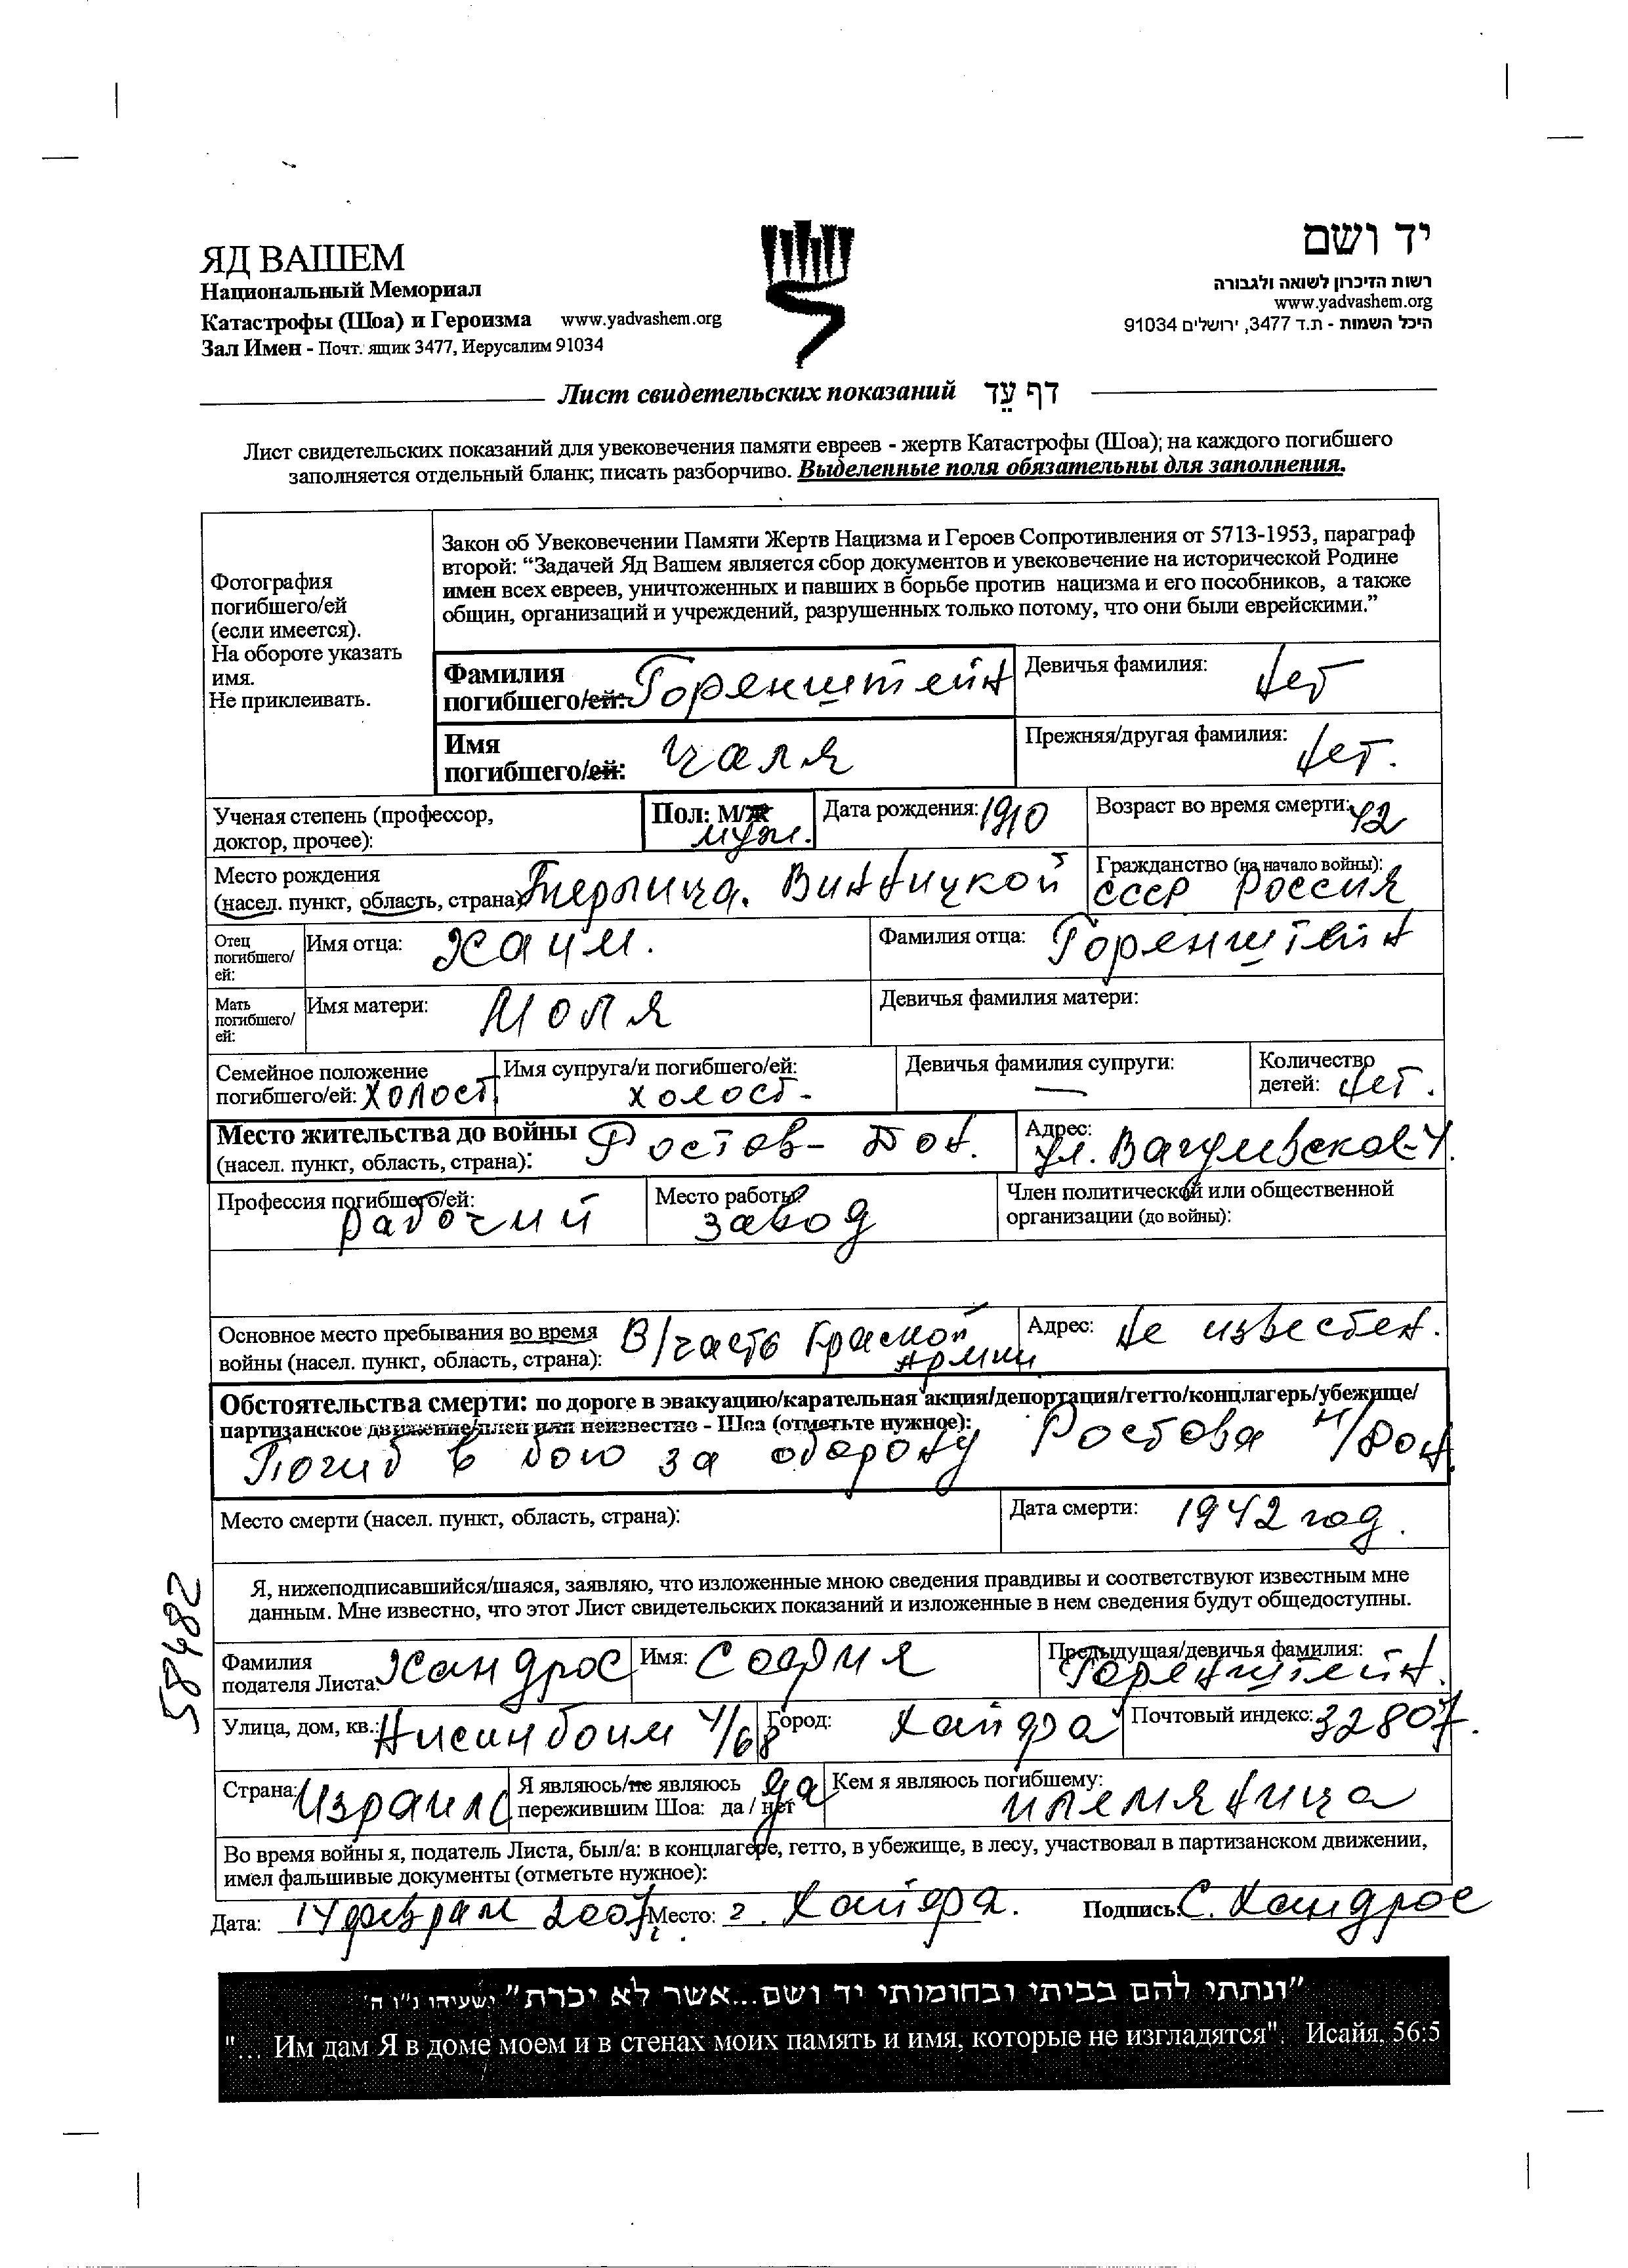 ЯД ВАШЕМ
Национальный Мемориал
Катастрофы (Шоа) и Героизма www.yadvashem.org
Зал Имен - Почт. ящик 3477, Иерусалим 91034
יד ושם
רשות הזיכרון לשואה ולגבורה
www.yadvashem.org
היכל השמות - ת.ד 3477, ירושלים 91034
Лист свидетельских показаний דף עֵד
Лист свидетельских показаний для увековечения памяти евреев - жертв Катастрофы (Шоа); на каждого погибшего
заполняется отдельный бланк; писать разборчиво. Выделенные поля обязательны для заполнения.
Фотография
погибшего/ей
(если имеется).
На обороте указать
имя.
Не приклеивать.
Закон об Увековечении Памяти Жертв Нацизма и Героев Сопротивления от 5713-1953, параграф
второй: “Задачей Яд Вашем является сбор документов и увековечение на исторической Родине
имен всех евреев, уничтоженных и павших в борьбе против нацизма и его пособников, а также
общин, организаций и учреждений, разрушенных только потому, что они были еврейскими.”
Фамилия
погибшего/ей: Горенштейн
Девичья фамилия: нет
Имя
погибшего/ей:
Прежняя/другая фамилия: нет.
Ученая степень (профессор,
доктор, прочее):
Пол: М/Ж
муж.
Дата рождения: 1910
Возраст во время смерти: 42
Место рождения
(насел. пункт, область, страна) Винницкой
Гражданство (на начало войны):
СССР Россия
Отец
погибшего/
ей:
Имя отца: Хаим.
Фамилия отца: Горенштейн
Мать
погибшего/
ей:
Имя матери:
Девичья фамилия матери:
Семейное положение
погибшего/ей: холост
Имя супруга/и погибшего/ей:
холост -
Девичья фамилия супруги:
—
Количество
детей: нет.
Место жительства до войны
(насел. пункт, область, страна): Ростов- Дон.
Адрес:
ул.
Профессия погибшего/ей:
рабочий
Место работы:
завод
Член политической или общественной
организации (до войны):
Основное место пребывания во время
войны (насел. пункт, область, страна): В/часть Красной
Армии
Адрес: не известен.
Обстоятельства смерти: по дороге в эвакуацию/карательная акция/депортация/гетто/концлагерь/убежище/
партизанское движение/плен или неизвестно - Шоа (отметьте нужное):
Погиб в бою за оборону Ростова н/Дон.
Место смерти (насел. пункт, область, страна):
Дата смерти: 1942 год.
58482
Я, нижеподписавшийся/шаяся, заявляю, что изложенные мною сведения правдивы и соответствуют известным мне
данным. Мне известно, что этот Лист свидетельских показаний и изложенные в нем сведения будут общедоступны.
Фамилия
подателя Листа: Хандрос
Имя: София
Предыдущая/девичья фамилия:
Горенштейн.
Улица, дом, кв.: Нисинбоим 4/68
Город: Хайфа
Почтовый индекс: 32807.
Страна: Израиль
Я являюсь/не являюсь
пережившим Шоа: да / нет да
Кем я являюсь погибшему:
племянница
Во время войны я, податель Листа, был/а: в концлагере, гетто, в убежище, в лесу, участвовал в партизанском движении,
имел фальшивые документы (отметьте нужное):
Дата: 14 феврам 2007г. Место: г. Хайфа. Подпись: С. Хандрос
"ונתתי להם בביתי ובחומותי יד ושם...אשר לא יכרת" ישעיהו נ"ו ה'
"... Им дам Я в доме моем и в стенах моих память и имя, которые не изгладятся". Исайя, 56:5